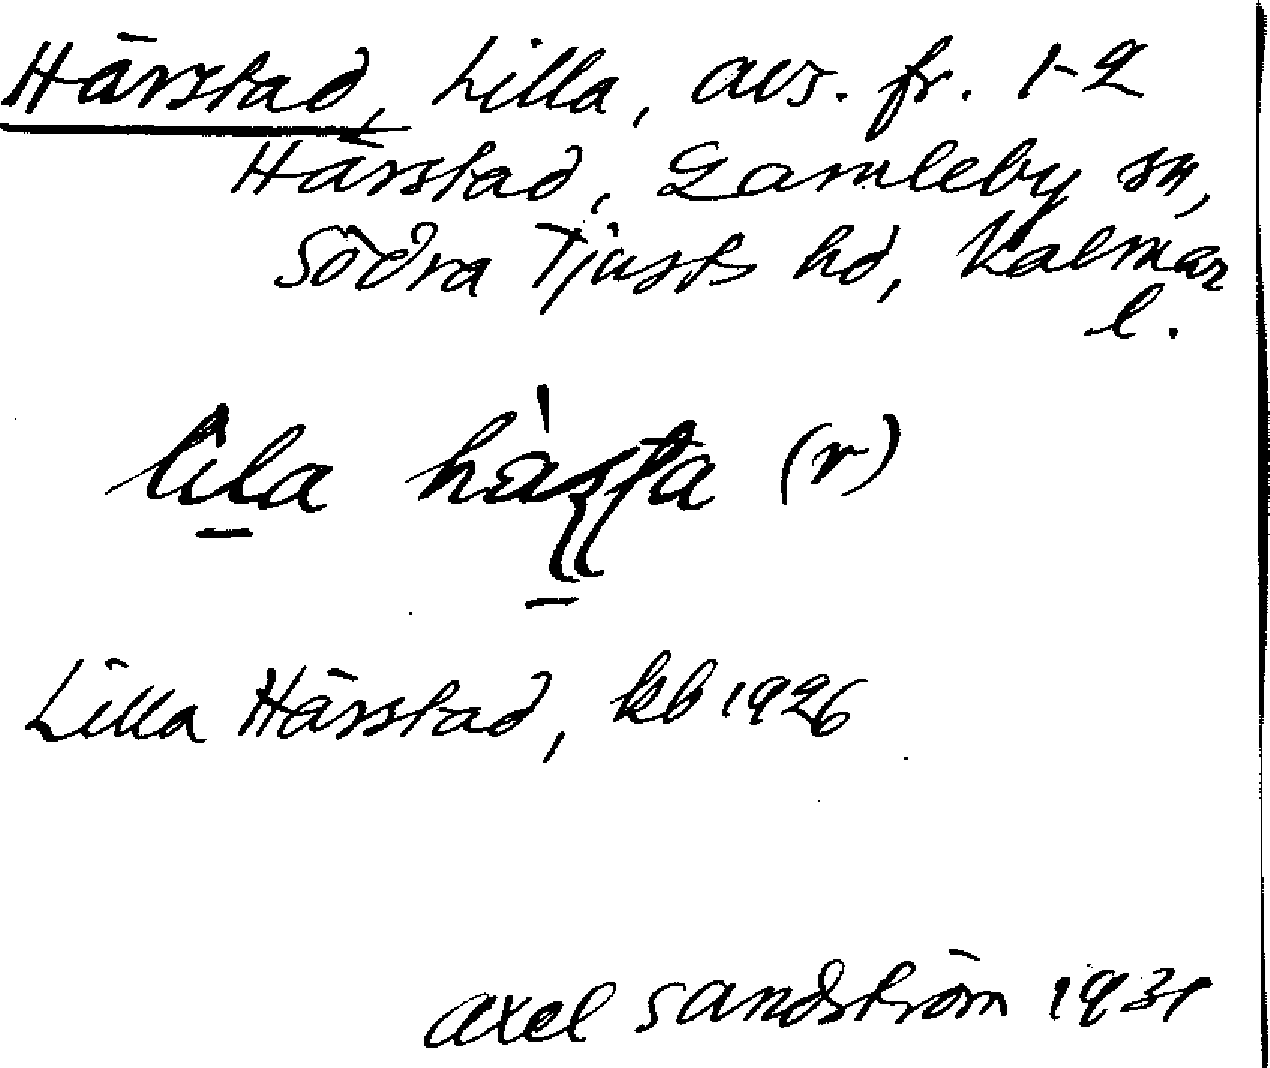 Härstad, Lilla, avs. fr. 1-2
Härstad, Gamleby sn,
Södra Tjusts hd, Kalmar
l.
lila hàsta (r)
Lilla Härstad, kb 1926
Axel Sandström 1931